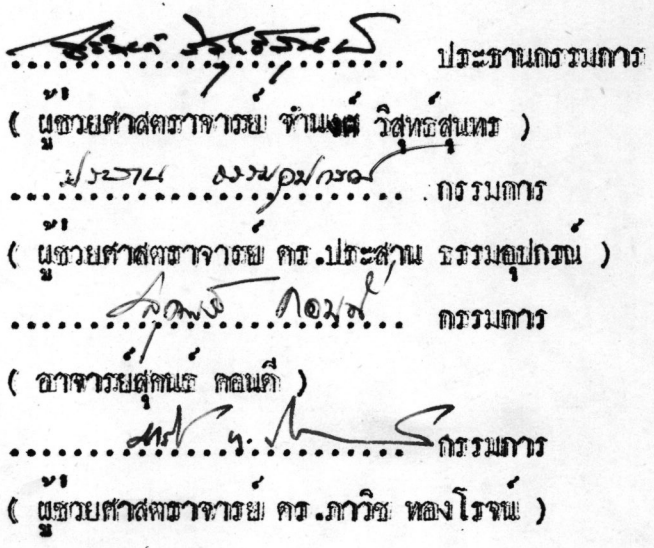 ........................ ประธานกรรมการ
( ผู้ช่วยศาสตราจารย์ จำนงค์ วิสุทธ์สุนทร )
ประสาน ธรรมอุปกรณ์ กรรมการ
( ผู้ช่วยศาสตราจารย์ ดร.ประสาน ธรรมอุปกรณ์ )
........................ กรรมการ
( อาจารย์สุคนธ์ คอนดี )
........................ กรรมการ
( ผู้ช่วยศาสตราจารย์ ดร.ภาวิช ทองโรจน์ )